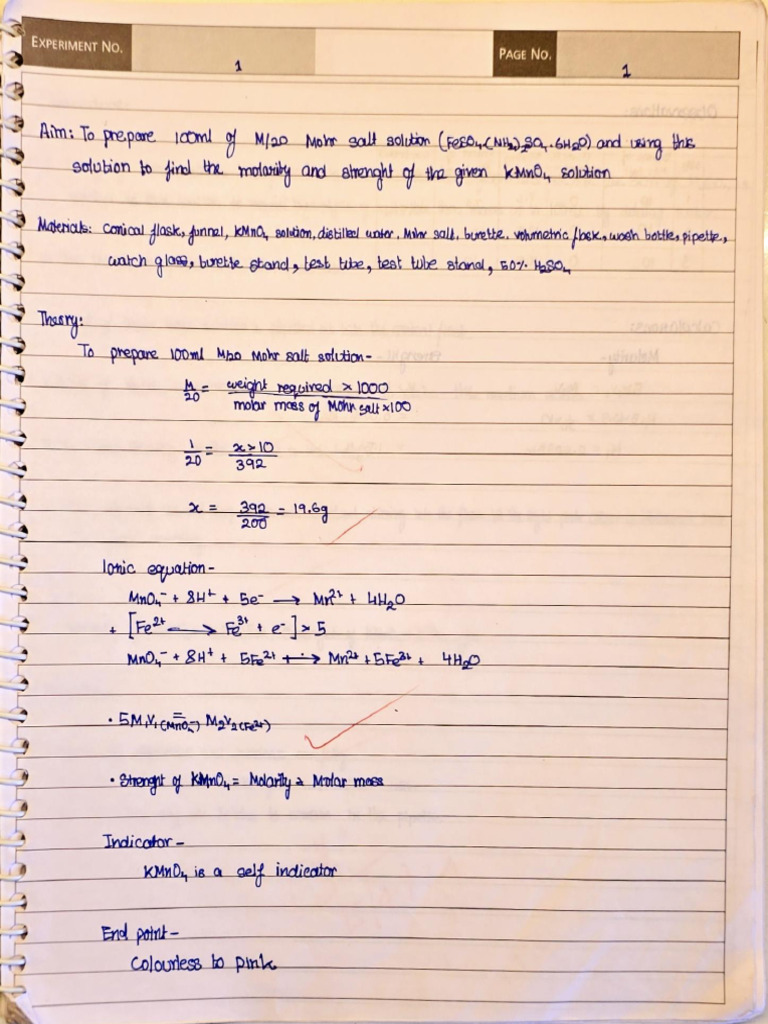 EXPERIMENT NO.
1
PAGE NO.
1
Aim: To prepare 100ml of M/20 Mohr salt solution (FeSO₄.(NH₄)₂SO₄.6H₂O) and using this
solution to find the molarity and strenght of the given KMnO₄ solution
Materials: Conical flask, funnel, KMnO₄ solution, distilled water, Mohr salt, burette, volumetric flask, wash bottle, pipette,
watch glass, burette stand, test tube, test tube stand, 50% H₂SO₄
Theory:
To prepare 100ml M/20 Mohr salt solution-
M/20 = weight required × 1000 / molar mass of Mohr salt × 100
1/20 = x × 10 / 392
x = 392/200 = 19.6g
Ionic equation-
MnO₄⁻ + 8H⁺ + 5e⁻ → Mn²⁺ + 4H₂O
+ [Fe²⁺ → Fe³⁺ + e⁻] × 5
MnO₄⁻ + 8H⁺ + 5Fe²⁺ → Mn²⁺ + 5Fe³⁺ + 4H₂O
• 5M₁V₁(MnO₄⁻) = M₂V₂(Fe²⁺)
• Strenght of KMnO₄ = Molarity × Molar mass
Indicator-
KMnO₄ is a self indicator
End point-
Colourless to pink